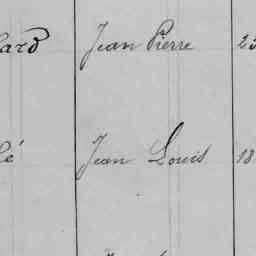 Jean Pierre
Jean Louis 18